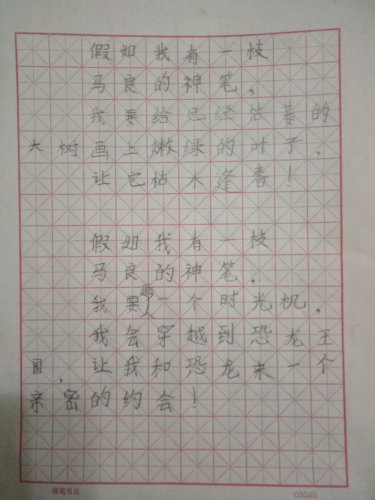 假如我有一枝
马良的神笔，
我要给已经枯萎的
大树画上嫩绿的叶子，
让它枯木逢春！
假如我有一枝
马良的神笔，
我要画一个时光机，
我会穿越到恐龙王
国，让我和恐龙来一个
亲密的约会！
03040